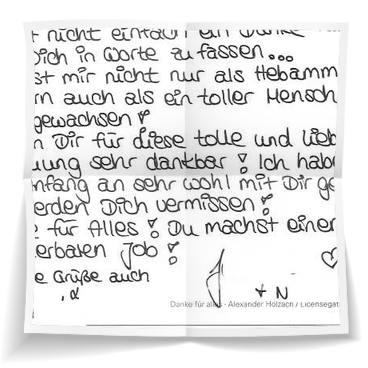 t nicht einfach ein Danke
Dich in Worte zu fassen...
st mir nicht nur als Hebamm
rn auch als ein toller Mensch
gewachsen!
n Dir für diese tolle und lieb
uung sehr dankbar! Ich habe
nfang an sehr wohl mit Dir ge
erden Dich vermissen!
e für Alles! Du machst einen
erbaren Job!
e Grüße auch
+ N
Danke für alles - Alexander Holzach / Licensegat